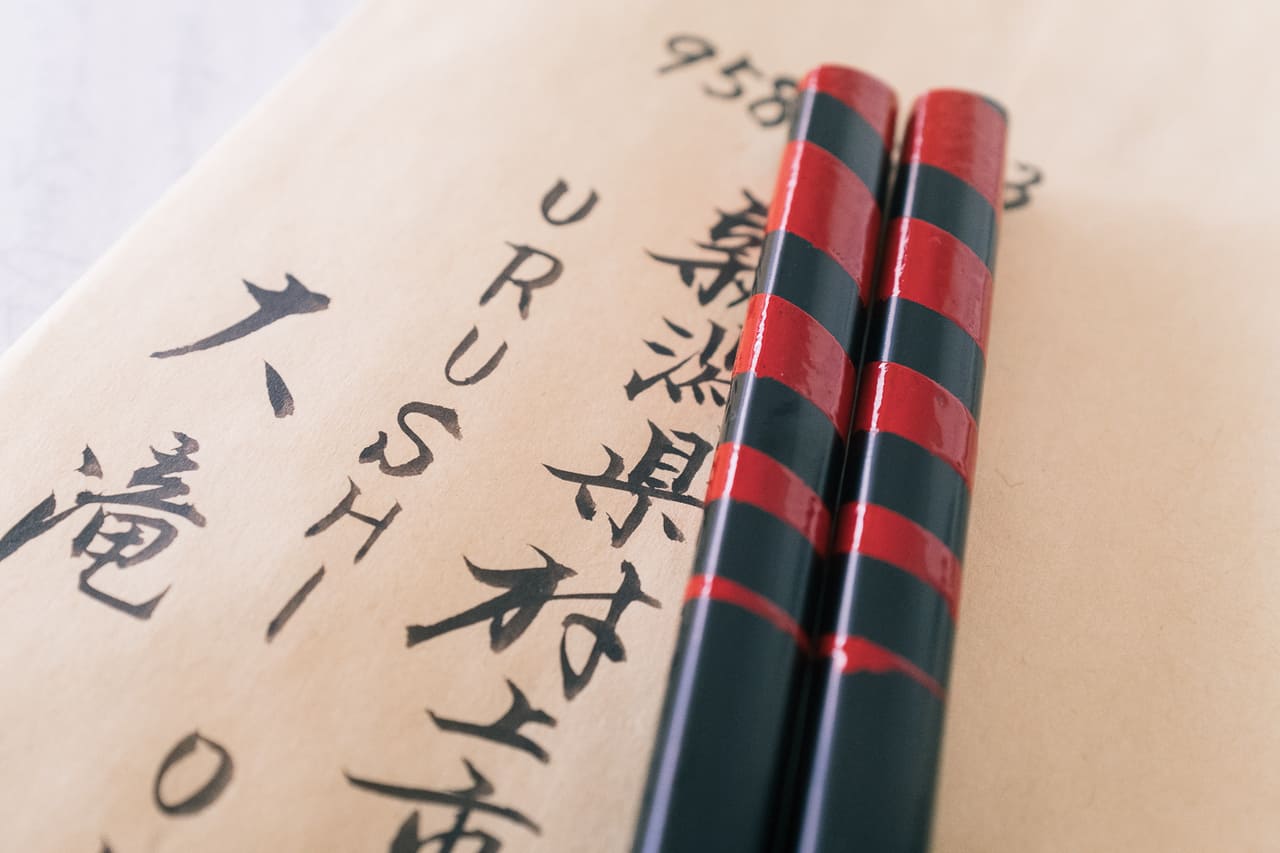 958 3
新潟県村上市
URUSHI O
大滝